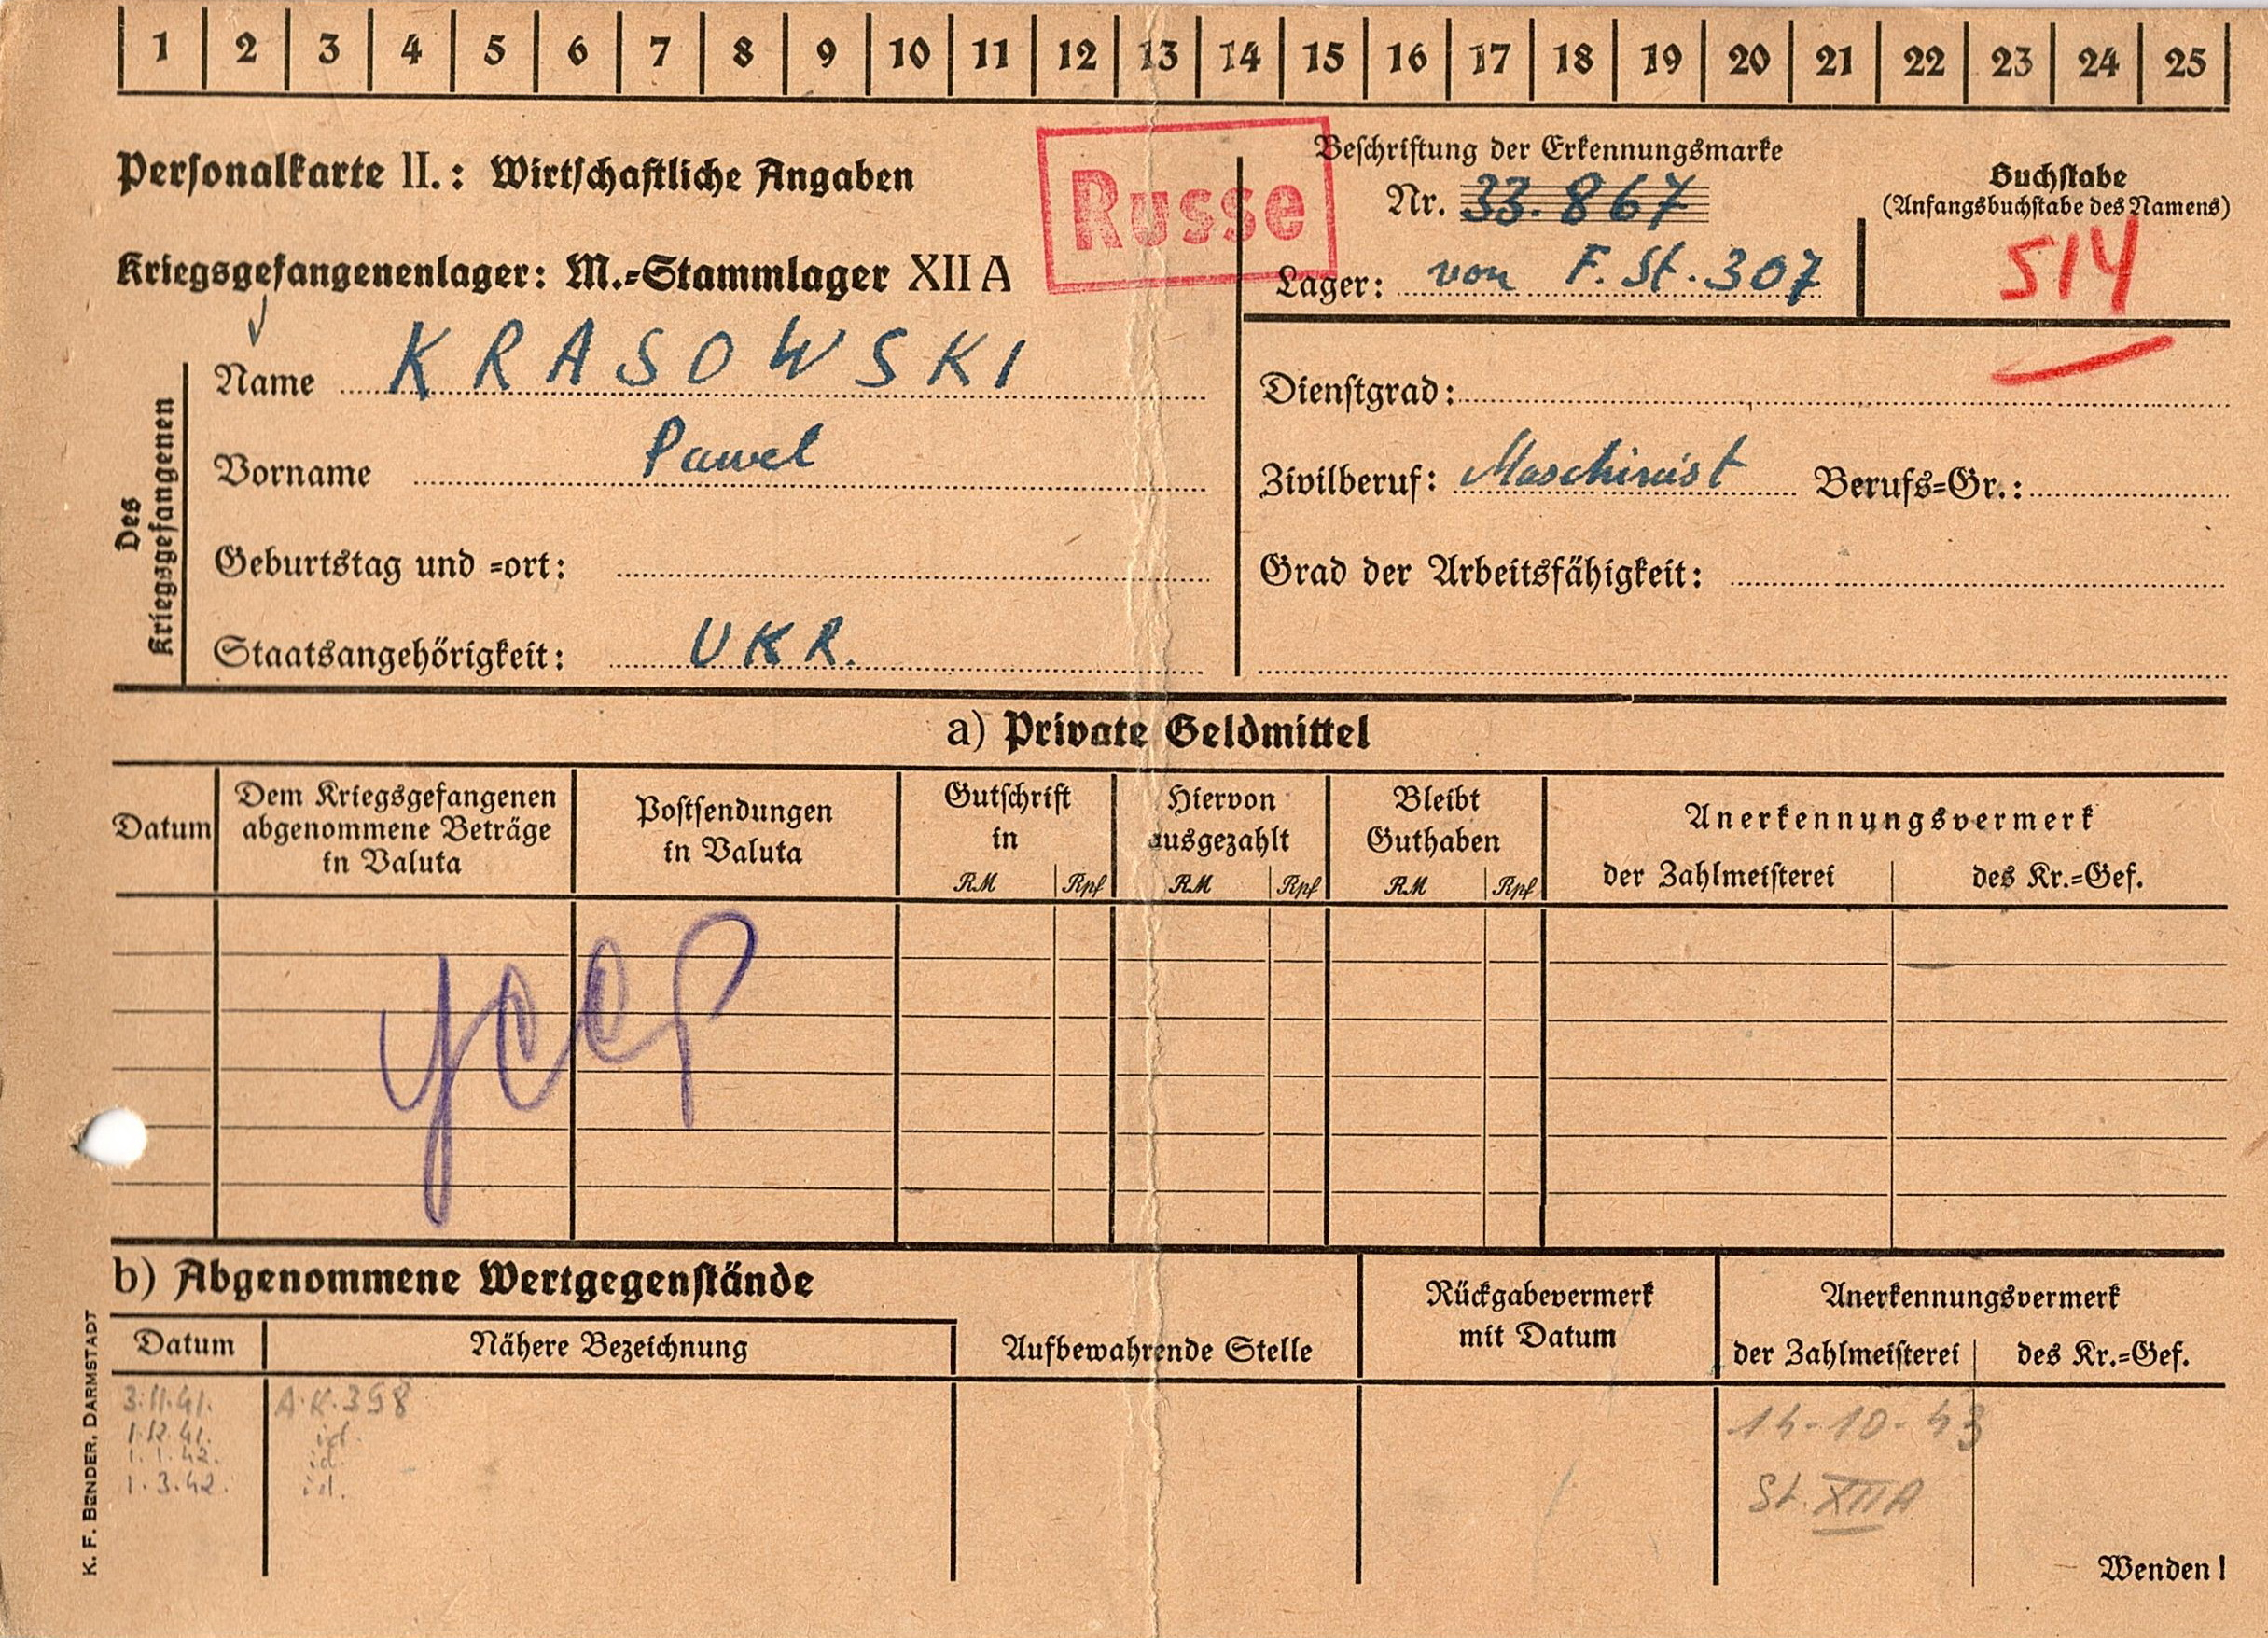 1 2 3 4 5 6 7 8 9 10 11 12 13 14 15 16 17 18 19 20 21 22 23 24 25
Personalkarte II.: Wirtschaftliche Angaben
Russe
Beschriftung der Erkennungsmarke
Nr. 33.867
Buchstabe
(Anfangsbuchstabe des Namens)
Kriegsgefangenenlager: M.-Stammlager XII A
Lager: von F. St. 307
514
Des
Kriegsgefangenen
Name KRASOWSKI
Dienstgrad:
Vorname Pawel
Zivilberuf: Maschinist Berufs-Gr.:
Geburtstag und -ort:
Grad der Arbeitsfähigkeit:
Staatsangehörigkeit: UKR.
a) Private Geldmittel
Datum
Dem Kriegsgefangenen
abgenommene Beträge
in Valuta
Postsendungen
in Valuta
Gutschrift
in
RM Rpf
Hiervon
ausgezahlt
RM Rpf
Bleibt
Guthaben
RM Rpf
Anerkennungsvermerk
der Zahlmeisterei des Kr.-Gef.
УССР
b) Abgenommene Wertgegenstände
Datum Nähere Bezeichnung
Aufbewahrende Stelle
Rückgabevermerk
mit Datum
Anerkennungsvermerk
der Zahlmeisterei des Kr.-Gef.
3.11.41. A.K.398
1.12.41. id.
1.1.42. id.
1.3.42. id.
14-10-43
St. XIIA
Wenden!
K. F. BENDER, DARMSTADT